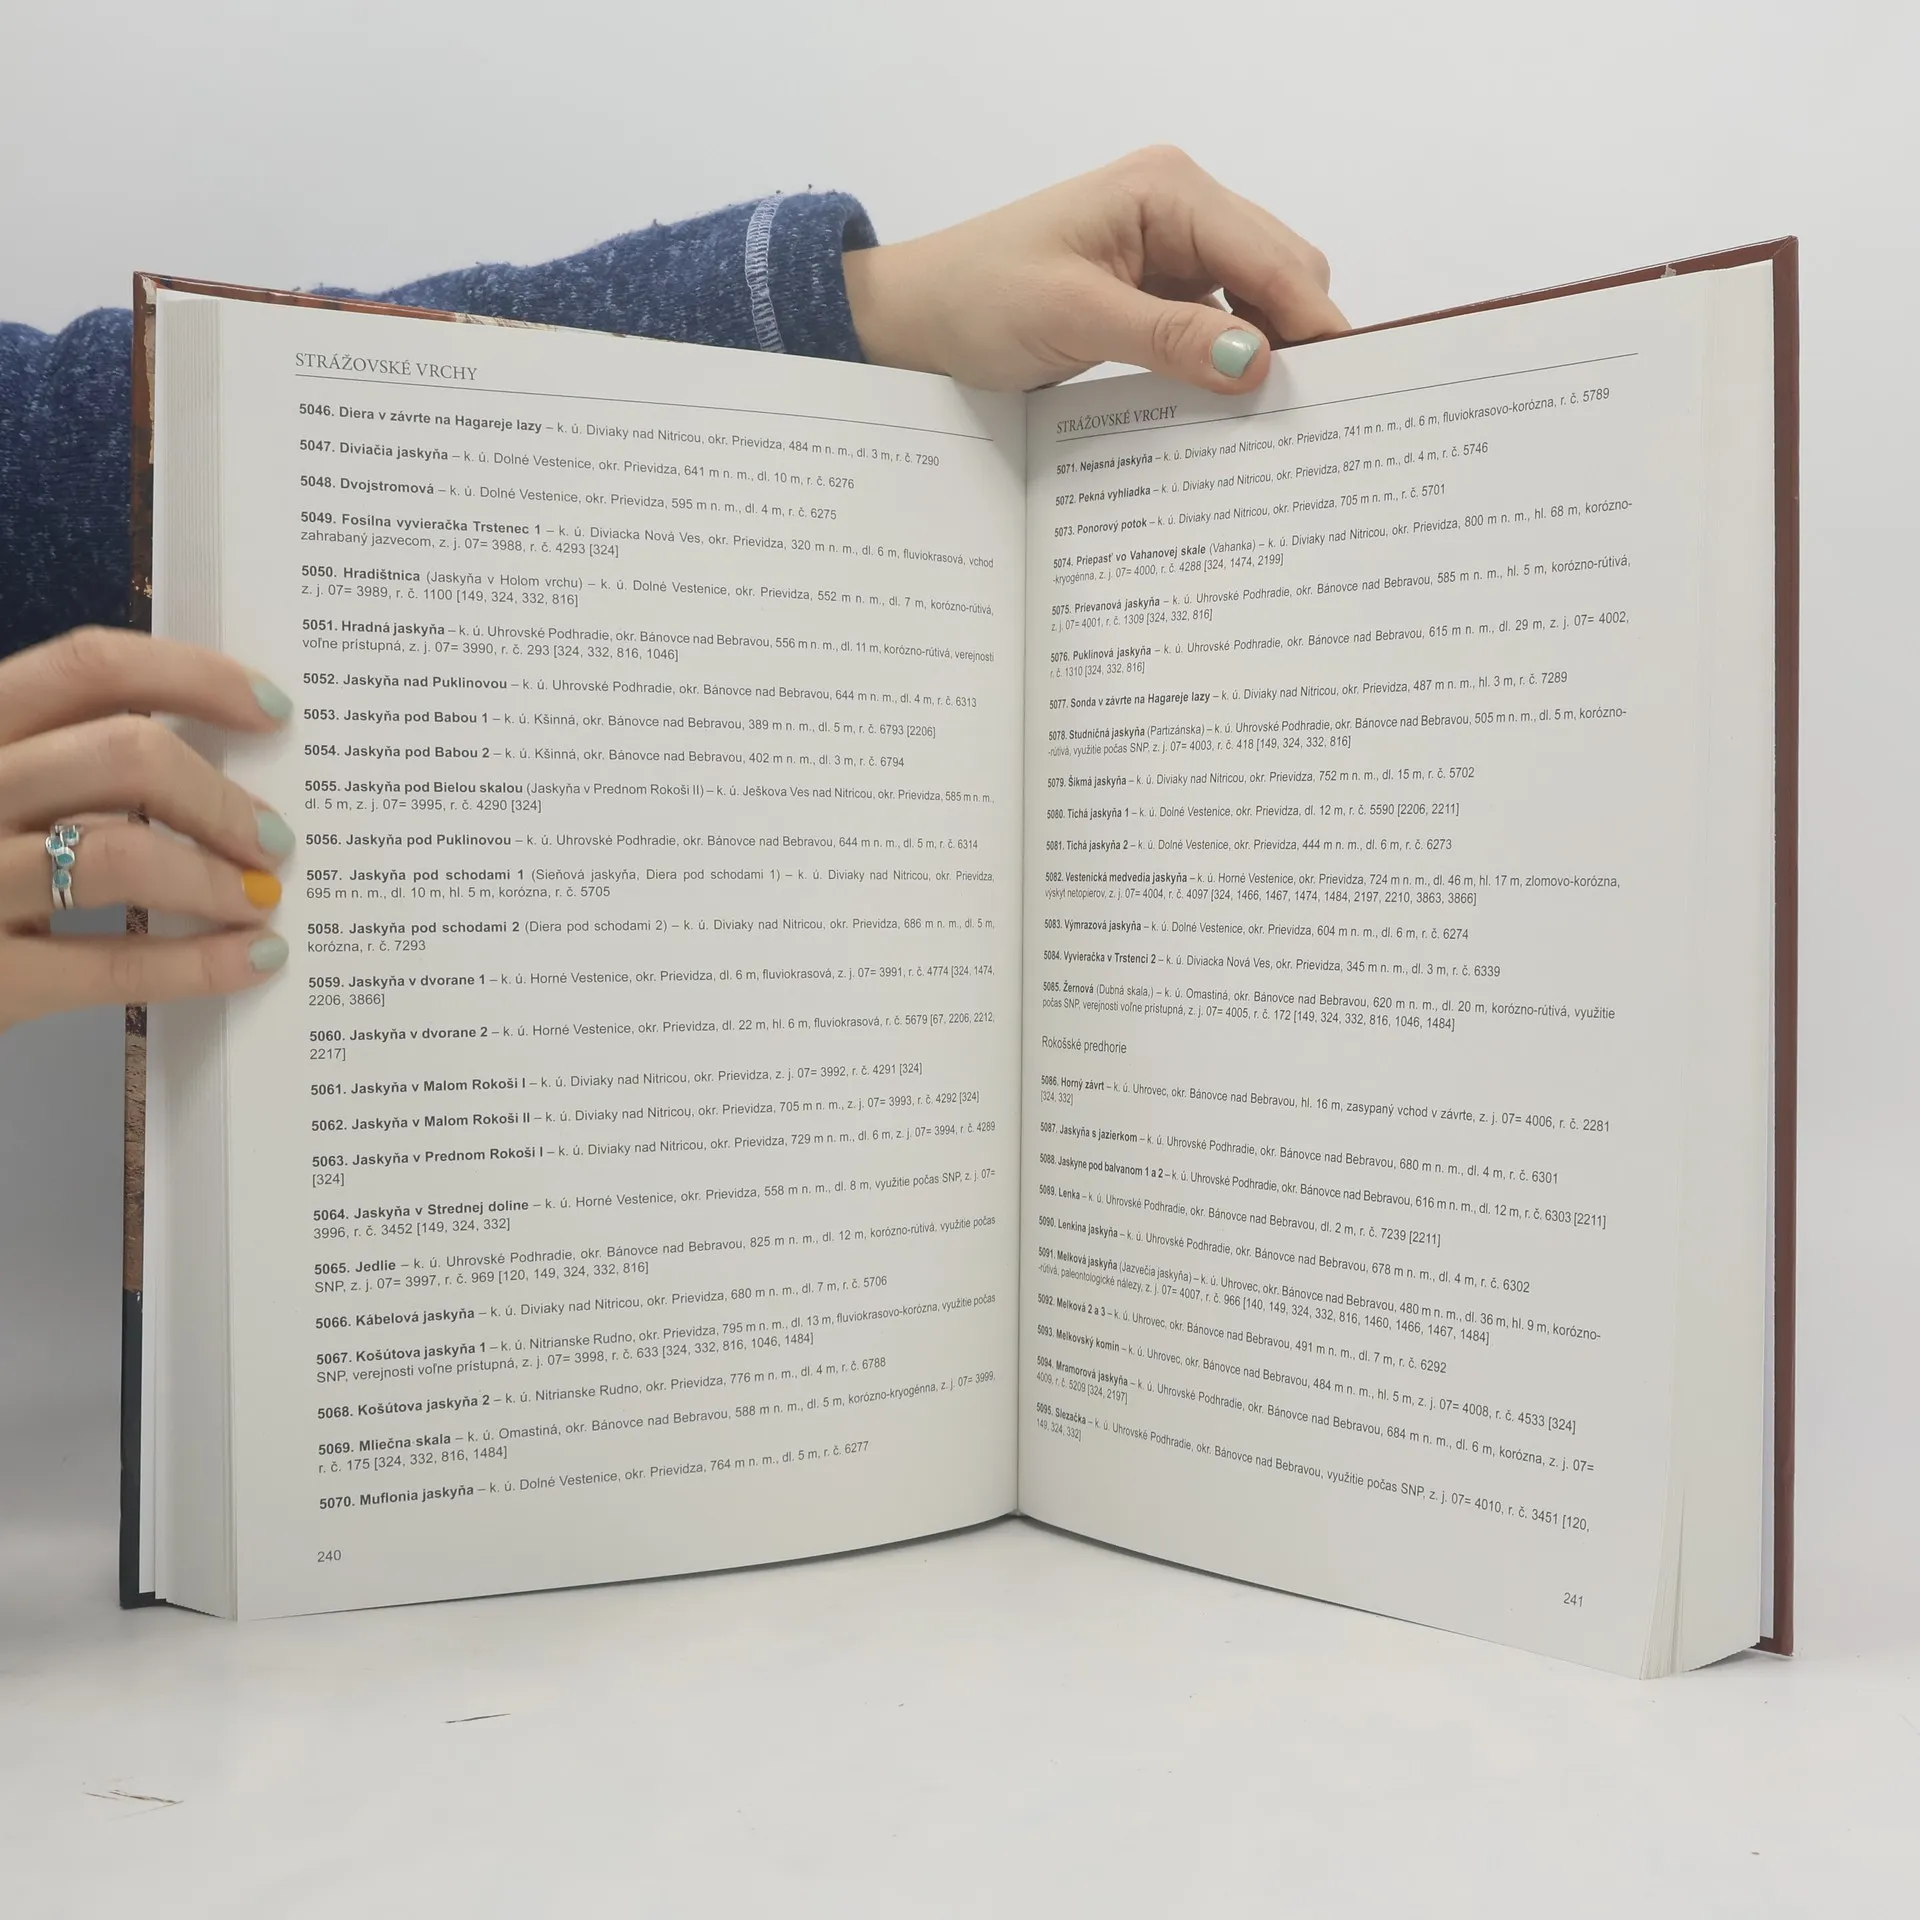 STRÁŽOVSKÉ VRCHY
5046. Diera v závrte na Hagareje lazy – k. ú. Diviaky nad Nitricou, okr. Prievidza, 484 m n. m., dl. 3 m, r. č. 7290
5047. Diviačia jaskyňa – k. ú. Dolné Vestenice, okr. Prievidza, 641 m n. m., dl. 10 m, r. č. 6276
5048. Dvojstromová – k. ú. Dolné Vestenice, okr. Prievidza, 595 m n. m., dl. 4 m, r. č. 6275
5049. Fosílna vyvieračka Trstenec 1 – k. ú. Diviacka Nová Ves, okr. Prievidza, 320 m n. m., dl. 6 m, fluviokrasová, vchod
zahrabaný jazvecom, z. j. 07= 3988, r. č. 4293 [324]
5050. Hradištnica (Jaskyňa v Holom vrchu) – k. ú. Dolné Vestenice, okr. Prievidza, 552 m n. m., dl. 7 m, korózno-rútivá,
z. j. 07= 3989, r. č. 1100 [149, 324, 332, 816]
5051. Hradná jaskyňa – k. ú. Uhrovské Podhradie, okr. Bánovce nad Bebravou, 556 m n. m., dl. 11 m, korózno-rútivá, verejnosti
voľne prístupná, z. j. 07= 3990, r. č. 293 [324, 332, 816, 1046]
5052. Jaskyňa nad Puklinovou – k. ú. Uhrovské Podhradie, okr. Bánovce nad Bebravou, 644 m n. m., dl. 4 m, r. č. 6313
5053. Jaskyňa pod Babou 1 – k. ú. Kšinná, okr. Bánovce nad Bebravou, 389 m n. m., dl. 5 m, r. č. 6793 [2206]
5054. Jaskyňa pod Babou 2 – k. ú. Kšinná, okr. Bánovce nad Bebravou, 402 m n. m., dl. 3 m, r. č. 6794
5055. Jaskyňa pod Bielou skalou (Jaskyňa v Prednom Rokoši II) – k. ú. Ješkova Ves nad Nitricou, okr. Prievidza, 585 m n. m.,
dl. 5 m, z. j. 07= 3995, r. č. 4290 [324]
5056. Jaskyňa pod Puklinovou – k. ú. Uhrovské Podhradie, okr. Bánovce nad Bebravou, 644 m n. m., dl. 5 m, r. č. 6314
5057. Jaskyňa pod schodami 1 (Sieňová jaskyňa, Diera pod schodami 1) – k. ú. Diviaky nad Nitricou, okr. Prievidza,
695 m n. m., dl. 10 m, hl. 5 m, korózna, r. č. 5705
5058. Jaskyňa pod schodami 2 (Diera pod schodami 2) – k. ú. Diviaky nad Nitricou, okr. Prievidza, 686 m n. m., dl. 5 m,
korózna, r. č. 7293
5059. Jaskyňa v dvorane 1 – k. ú. Horné Vestenice, okr. Prievidza, dl. 6 m, fluviokrasová, z. j. 07= 3991, r. č. 4774 [324, 1474,
2206, 3866]
5060. Jaskyňa v dvorane 2 – k. ú. Horné Vestenice, okr. Prievidza, dl. 22 m, hl. 6 m, fluviokrasová, r. č. 5679 [67, 2206, 2212,
2217]
5061. Jaskyňa v Malom Rokoši I – k. ú. Diviaky nad Nitricou, okr. Prievidza, z. j. 07= 3992, r. č. 4291 [324]
5062. Jaskyňa v Malom Rokoši II – k. ú. Diviaky nad Nitricou, okr. Prievidza, 705 m n. m., z. j. 07= 3993, r. č. 4292 [324]
5063. Jaskyňa v Prednom Rokoši I – k. ú. Diviaky nad Nitricou, okr. Prievidza, 729 m n. m., dl. 6 m, z. j. 07= 3994, r. č. 4289
[324]
5064. Jaskyňa v Strednej doline – k. ú. Horné Vestenice, okr. Prievidza, 558 m n. m., dl. 8 m, využitie počas SNP, z. j. 07=
3996, r. č. 3452 [149, 324, 332]
5065. Jedlie – k. ú. Uhrovské Podhradie, okr. Bánovce nad Bebravou, 825 m n. m., dl. 12 m, korózno-rútivá, využitie počas
SNP, z. j. 07= 3997, r. č. 969 [120, 149, 324, 332, 816]
5066. Kábelová jaskyňa – k. ú. Diviaky nad Nitricou, okr. Prievidza, 680 m n. m., dl. 7 m, r. č. 5706
5067. Košútova jaskyňa 1 – k. ú. Nitrianske Rudno, okr. Prievidza, 795 m n. m., dl. 13 m, fluviokrasovo-korózna, využitie počas
SNP, verejnosti voľne prístupná, z. j. 07= 3998, r. č. 633 [324, 332, 816, 1046, 1484]
5068. Košútova jaskyňa 2 – k. ú. Nitrianske Rudno, okr. Prievidza, 776 m n. m., dl. 4 m, r. č. 6788
5069. Mliečna skala – k. ú. Omastiná, okr. Bánovce nad Bebravou, 588 m n. m., dl. 5 m, korózno-kryogénna, z. j. 07= 3999,
r. č. 175 [324, 332, 816, 1484]
5070. Muflonia jaskyňa – k. ú. Dolné Vestenice, okr. Prievidza, 764 m n. m., dl. 5 m, r. č. 6277
240
STRÁŽOVSKÉ VRCHY
5071. Nejasná jaskyňa – k. ú. Diviaky nad Nitricou, okr. Prievidza, 741 m n. m., dl. 6 m, fluviokrasovo-korózna, r. č. 5789
5072. Pekná vyhliadka – k. ú. Diviaky nad Nitricou, okr. Prievidza, 827 m n. m., dl. 4 m, r. č. 5746
5073. Ponorový potok – k. ú. Diviaky nad Nitricou, okr. Prievidza, 705 m n. m., r. č. 5701
5074. Priepasť vo Vahanovej skale (Vahanka) – k. ú. Diviaky nad Nitricou, okr. Prievidza, 800 m n. m., hl. 68 m, korózno-
-kryogénna, z. j. 07= 4000, r. č. 4288 [324, 1474, 2199]
5075. Prievanová jaskyňa – k. ú. Uhrovské Podhradie, okr. Bánovce nad Bebravou, 585 m n. m., hl. 5 m, korózno-rútivá,
z. j. 07= 4001, r. č. 1309 [324, 332, 816]
5076. Puklinová jaskyňa – k. ú. Uhrovské Podhradie, okr. Bánovce nad Bebravou, 615 m n. m., dl. 29 m, z. j. 07= 4002,
r. č. 1310 [324, 332, 816]
5077. Sonda v závrte na Hagareje lazy – k. ú. Diviaky nad Nitricou, okr. Prievidza, 487 m n. m., hl. 3 m, r. č. 7289
5078. Studničná jaskyňa (Partizánska) – k. ú. Uhrovské Podhradie, okr. Bánovce nad Bebravou, 505 m n. m., dl. 5 m, korózno-
-rútivá, využitie počas SNP, z. j. 07= 4003, r. č. 418 [149, 324, 332, 816]
5079. Šikmá jaskyňa – k. ú. Diviaky nad Nitricou, okr. Prievidza, 752 m n. m., dl. 15 m, r. č. 5702
5080. Tichá jaskyňa 1 – k. ú. Dolné Vestenice, okr. Prievidza, dl. 12 m, r. č. 5590 [2206, 2211]
5081. Tichá jaskyňa 2 – k. ú. Dolné Vestenice, okr. Prievidza, 444 m n. m., dl. 6 m, r. č. 6273
5082. Vestenická medvedia jaskyňa – k. ú. Horné Vestenice, okr. Prievidza, 724 m n. m., dl. 46 m, hl. 17 m, zlomovo-korózna,
výskyt netopierov, z. j. 07= 4004, r. č. 4097 [324, 1466, 1467, 1474, 1484, 2197, 2210, 3863, 3866]
5083. Výmrazová jaskyňa – k. ú. Dolné Vestenice, okr. Prievidza, 604 m n. m., dl. 6 m, r. č. 6274
5084. Vyvieračka v Trstenci 2 – k. ú. Diviacka Nová Ves, okr. Prievidza, 345 m n. m., dl. 3 m, r. č. 6339
5085. Žernová (Dubná skala,) – k. ú. Omastiná, okr. Bánovce nad Bebravou, 620 m n. m., dl. 20 m, korózno-rútivá, využitie
počas SNP, verejnosti voľne prístupná, z. j. 07= 4005, r. č. 172 [149, 324, 332, 816, 1046, 1484]
Rokošské predhorie
5086. Horný závrt – k. ú. Uhrovec, okr. Bánovce nad Bebravou, hl. 16 m, zasypaný vchod v závrte, z. j. 07= 4006, r. č. 2281
[324, 332]
5087. Jaskyňa s jazierkom – k. ú. Uhrovské Podhradie, okr. Bánovce nad Bebravou, 680 m n. m., dl. 4 m, r. č. 6301
5088. Jaskyne pod balvanom 1 a 2 – k. ú. Uhrovské Podhradie, okr. Bánovce nad Bebravou, 616 m n. m., dl. 12 m, r. č. 6303 [2211]
5089. Lenka – k. ú. Uhrovské Podhradie, okr. Bánovce nad Bebravou, dl. 2 m, r. č. 7239 [2211]
5090. Lenkina jaskyňa – k. ú. Uhrovské Podhradie, okr. Bánovce nad Bebravou, 678 m n. m., dl. 4 m, r. č. 6302
5091. Melková jaskyňa (Jazvečia jaskyňa) – k. ú. Uhrovec, okr. Bánovce nad Bebravou, 480 m n. m., dl. 36 m, hl. 9 m, korózno-
-rútivá, paleontologické nálezy, z. j. 07= 4007, r. č. 966 [140, 149, 324, 332, 816, 1460, 1466, 1467, 1484]
5092. Melková 2 a 3 – k. ú. Uhrovec, okr. Bánovce nad Bebravou, 491 m n. m., dl. 7 m, r. č. 6292
5093. Melkovský komín – k. ú. Uhrovec, okr. Bánovce nad Bebravou, 484 m n. m., hl. 5 m, z. j. 07= 4008, r. č. 4533 [324]
5094. Mramorová jaskyňa – k. ú. Uhrovské Podhradie, okr. Bánovce nad Bebravou, 684 m n. m., dl. 6 m, korózna, z. j. 07=
4009, r. č. 5209 [324, 2197]
5095. Slezačka – k. ú. Uhrovské Podhradie, okr. Bánovce nad Bebravou, využitie počas SNP, z. j. 07= 4010, r. č. 3451 [120,
149, 324, 332]
241